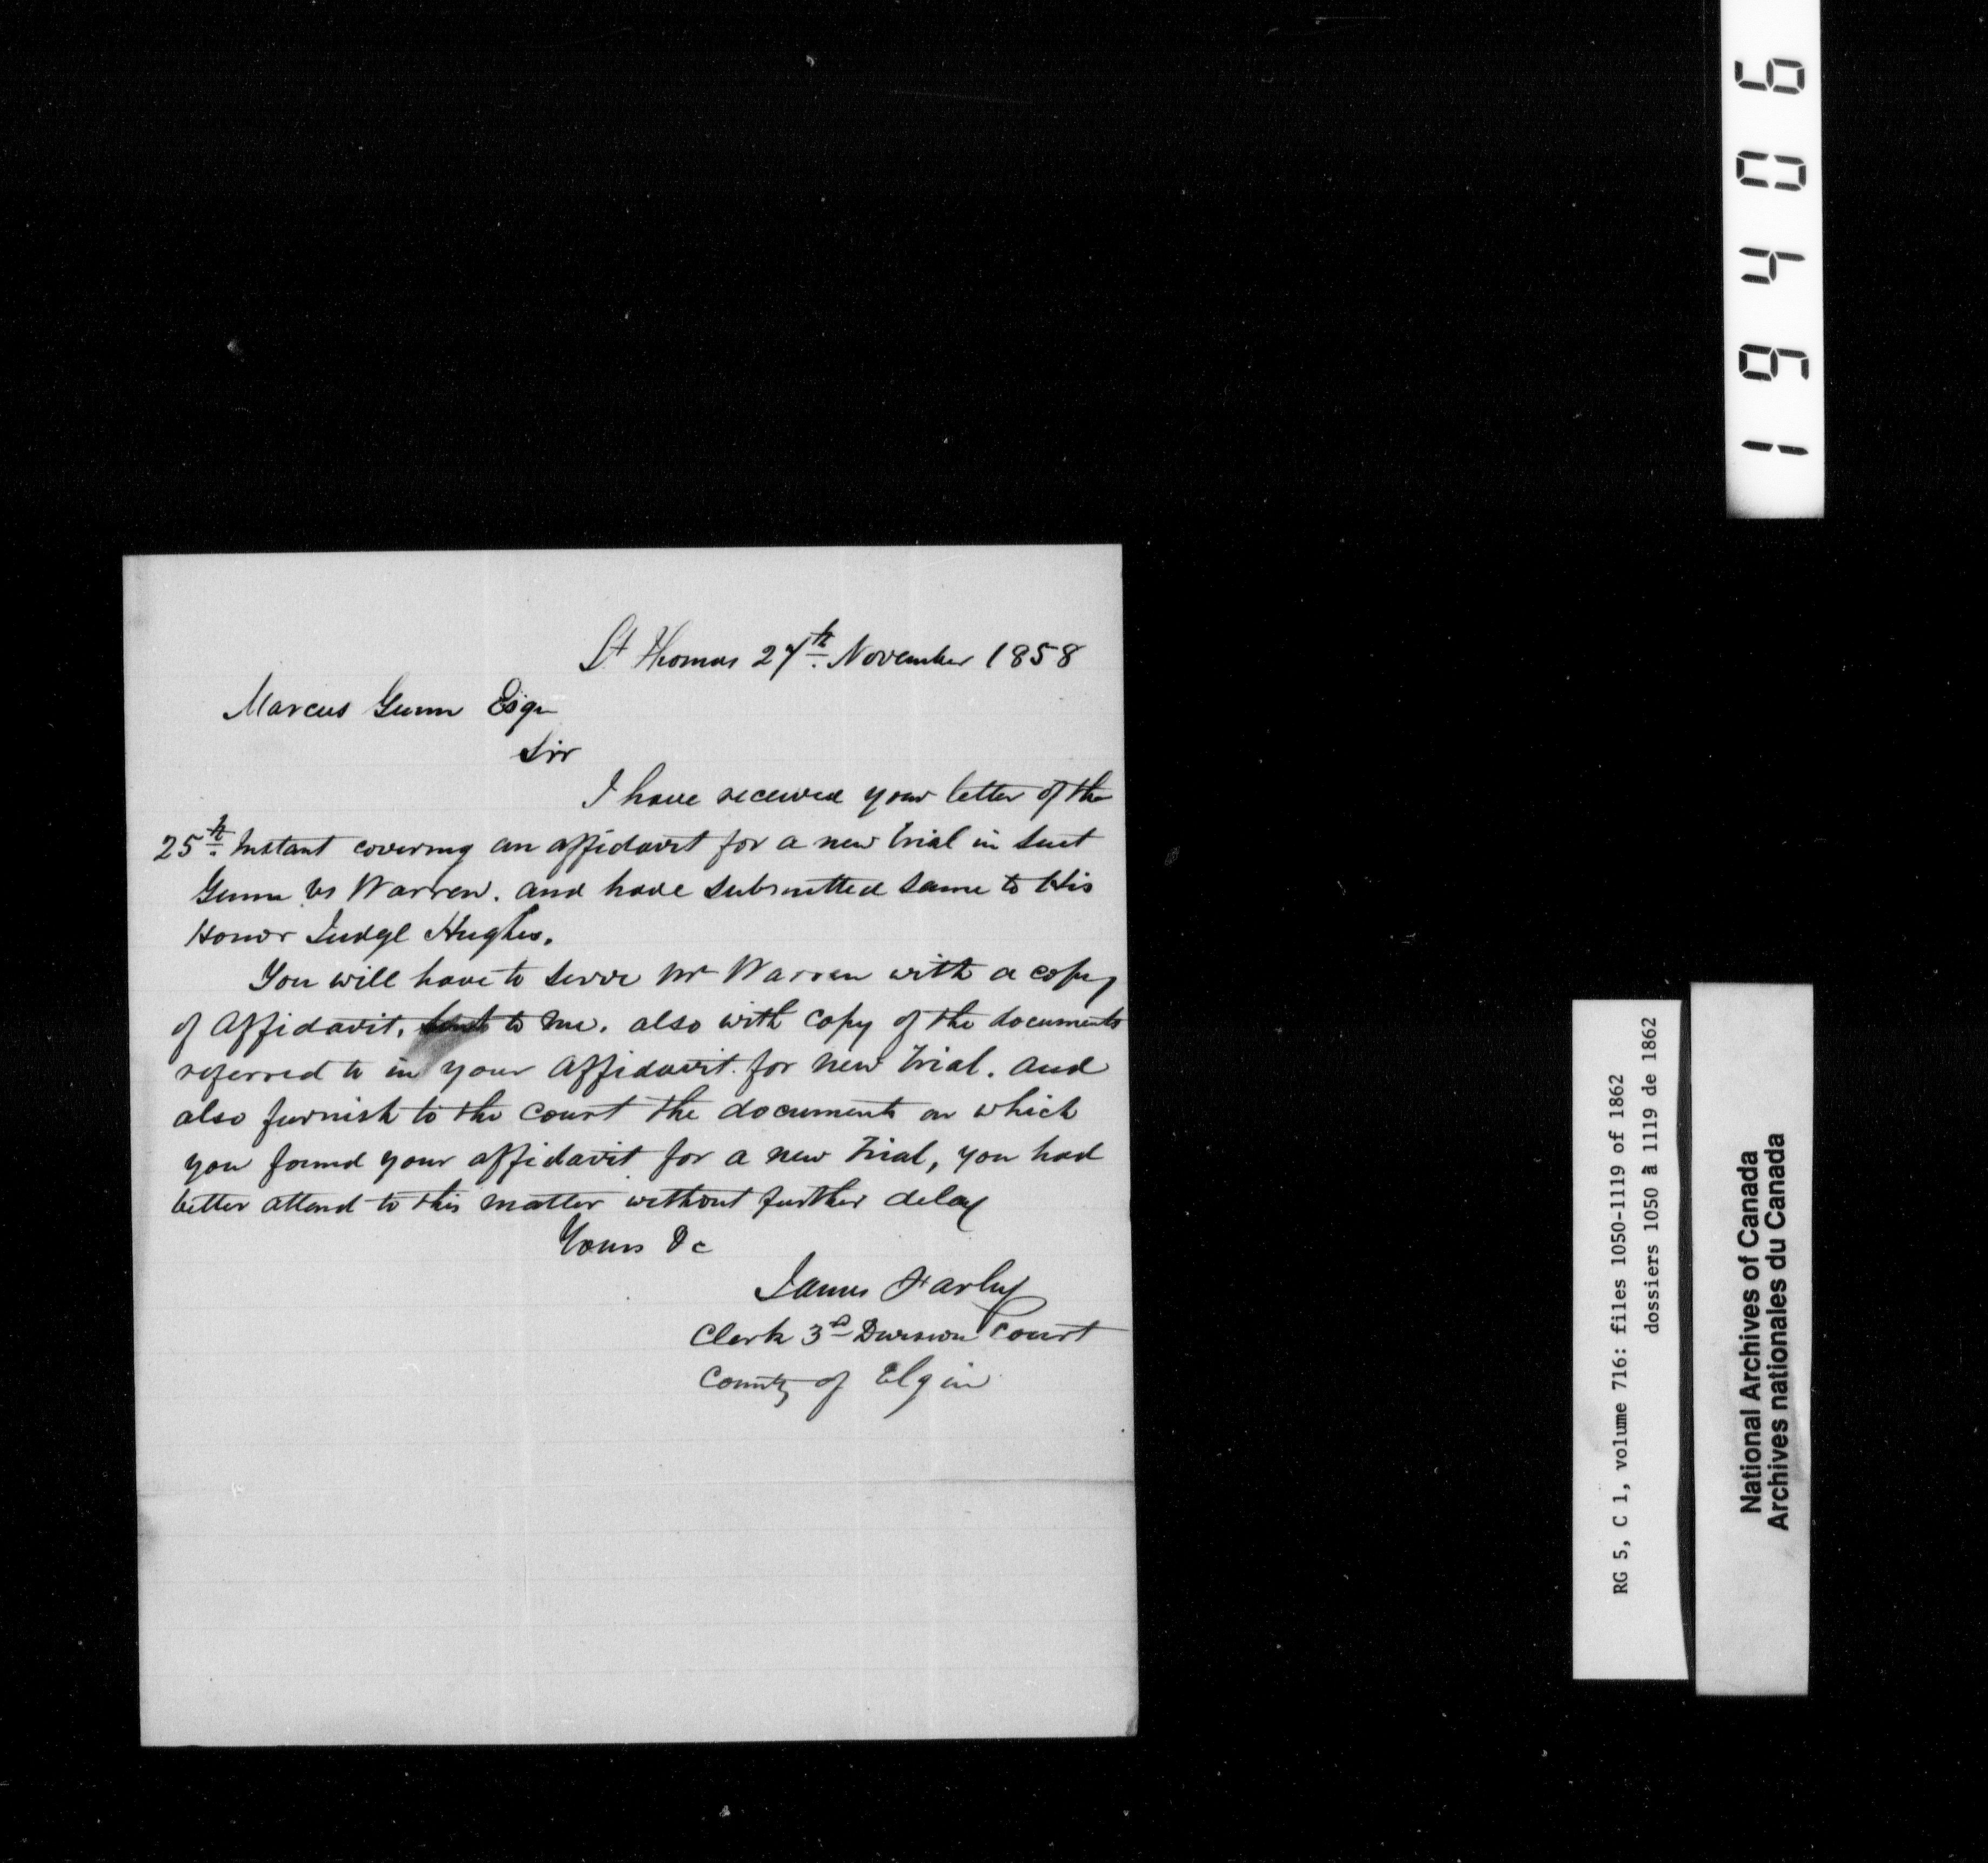 St Thomas 27th November 1858
Marcus Gunn Esqr
Sir
I have received your letter of the
25th Instant covering an affidavit for a new trial in suit
Gunn vs Warren. and have submitted same to His
Honor Judge Hughes.
You will have to serve Mr Warren with a copy
of affidavit, sent to me. also with copy of the documents
referred to in your affidavit for new trial. and
also furnish to the court the documents on which
you found your affidavit for a new trial, you had
better attend to this matter without further delay
Yours &c
James Farley
Clerk 3d Division Court
County of Elgin
19406
RG 5, C 1, volume 716: files 1050-1119 of 1862
dossiers 1050 à 1119 de 1862
National Archives of Canada
Archives nationales du Canada